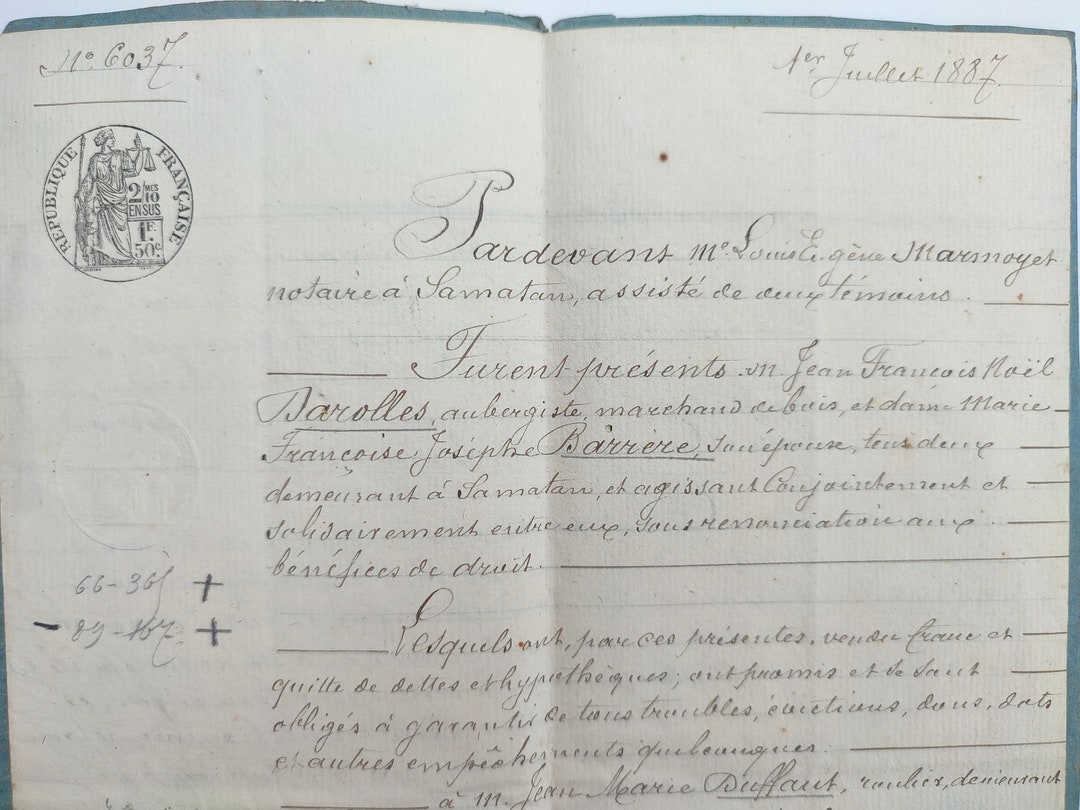 No 6037.
1er Juillet 1887
RÉPUBLIQUE FRANÇAISE
2/10 MES
EN SUS
1F.
50c.
Pardevant Me Louis Eugène Marmoyet
notaire à Samatan, assisté de deux témoins.
Furent présents M. Jean François Noël
Darolles, aubergiste, marchand de bois, et dame Marie
Françoise Josèphe Barrère, son épouse, tous deux
demeurant à Samatan, et agissant Conjointement et
solidairement entre eux, sous renonciation aux
bénéfices de droit.
66-365 +
- 89-167 +
Lesquels ont, par ces présentes, vendu franc et
quitte de dettes et hypothèques; ont promis et se sont
obligés à garantir de tous troubles, évictions, dons, dots
et autres empêchements quelconques.
à M. Jean Marie Duffaut, roulier, demeurant